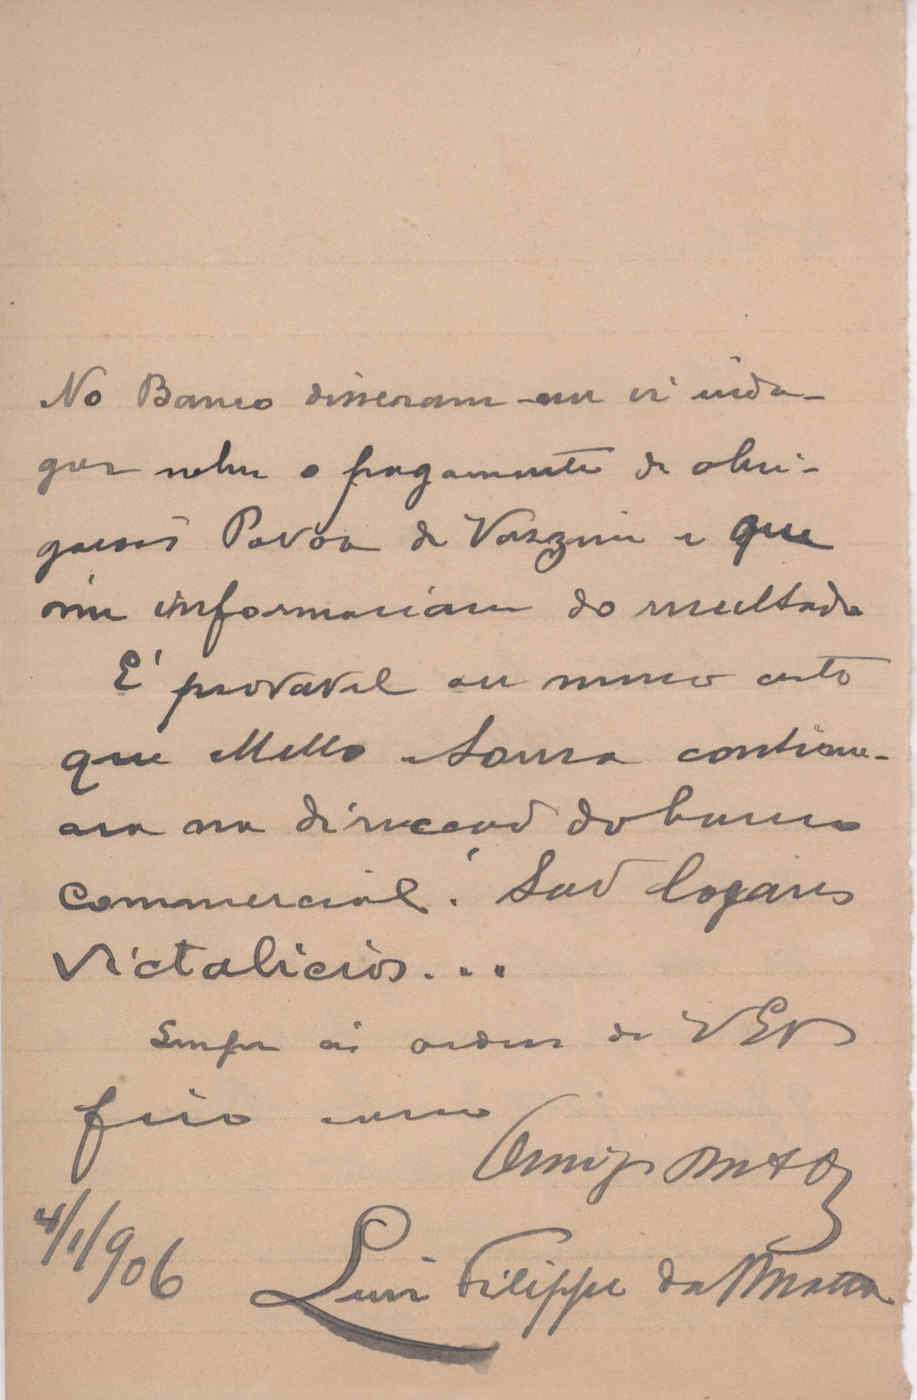 No Banco disseram-me ir inda-
gar sobre o pagamento de obri-
gações Povoa de Varzim e que
me informariam do resultado
É provavel ou menos certo
que Mello Souza continu-
ara na direcçaõ do banco
commercial. Saõ logares
victalicios...
Sempre ás ordens de V Exª
fico como
Amigo mto
4/1/906 Luis Filippe da Matta